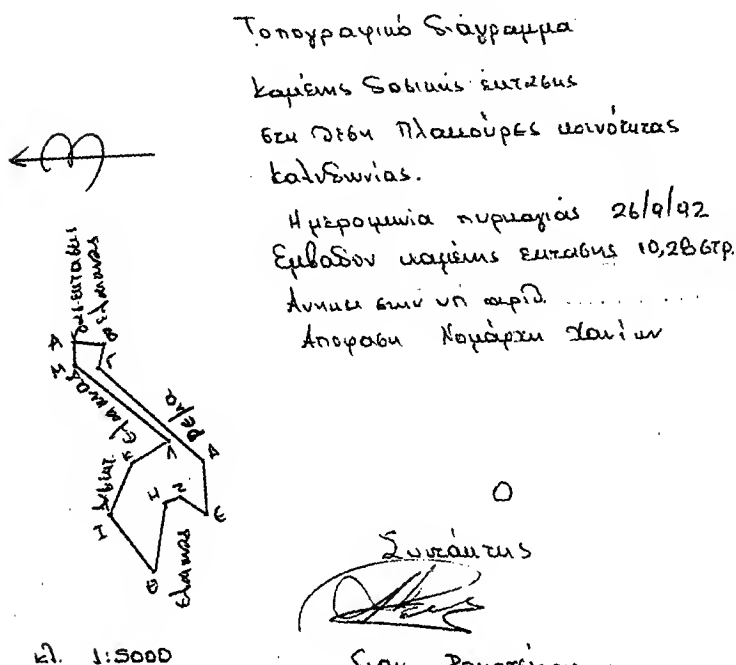 Τοπογραφικό διάγραμμα
καμένης δασικής έκτασης
στη θέση Πλακούρες κοινότητας
Καλυδωνίας.
Ημερομηνία πυρκαγιάς 26/9/92
Εμβαδόν καμένης εκτάσης 10,28 στρ.
Ανήκει στην υπ αριθ. ..........
Απόφαση Νομάρχη Χανίων
δασ. εκτασεις
Ελαιωνας
Α
Β
Μ
Γ
Ελαιωνας
ρεμα
Λ
Δ
Κ
δασ εκτ.
Η
Ζ
Ι
Ε
Θ
Ελαιωνας
Ο
Συντάκτης
κλ. 1:5000